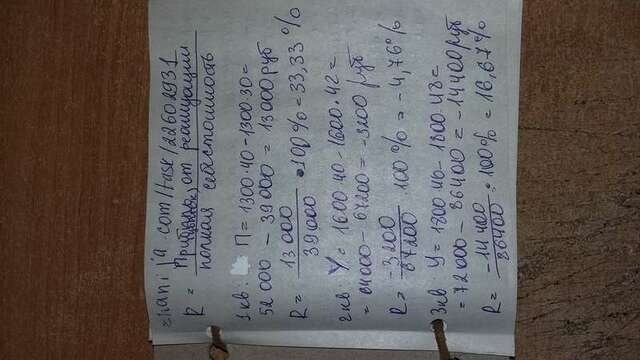 znanija com/task/22602931
R = Прибыль от реализации
полная себестоимость
1 кв: П = 1300·40 - 1300·30 =
52 000 - 39 000 = 13 000 руб
R = 13 000 / 39 000 · 100 % = 33,33 %
2 кв: У = 1600·40 - 1600·42 =
= 64000 - 67200 = -3200 руб
R = -3200 / 67200 100 % = -4,76 %
3 кв У = 1800·40 - 1800·48 =
= 72 000 - 86400 = -14400 руб
R = -14 400 / 86400 · 100 % = 16,67 %